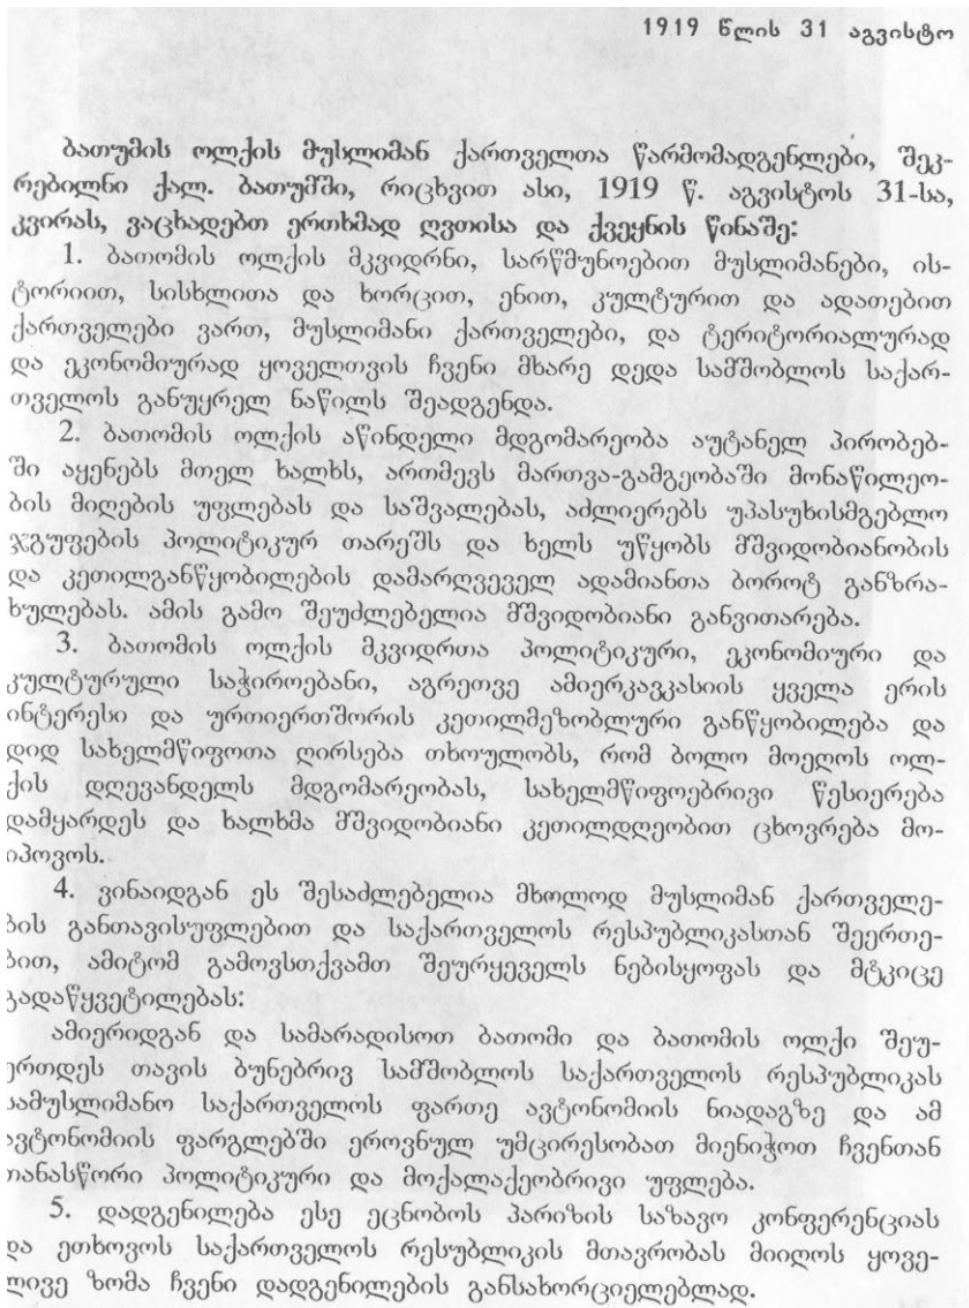 1919 წლის 31 აგვისტო
ბათუმის ოლქის მუსლიმან ქართველთა წარმომადგენლები, შეკ-
რებილნი ქალ. ბათუმში, რიცხვით ასი, 1919 წ. აგვისტოს 31-სა,
კვირას, ვაცხადებთ ერთხმად ღვთისა და ქვეყნის წინაშე:
1. ბათომის ოლქის მკვიდრნი, სარწმუნოებით მუსლიმანები, ის-
ტორიით, სისხლითა და ხორცით, ენით, კულტურით და ადათებით
ქართველები ვართ, მუსლიმანი ქართველები, და ტერიტორიალურად
და ეკონომიურად ყოველთვის ჩვენი მხარე დედა სამშობლოს საქარ-
თველოს განუყრელ ნაწილს შეადგენდა.
2. ბათომის ოლქის აწინდელი მდგომარეობა აუტანელ პირობებ-
ში აყენებს მთელ ხალხს, ართმევს მართვა-გამგეობაში მონაწილეო-
ბის მიღების უფლებას და საშვალებას, აძლიერებს უპასუხისმგებლო
ჯგუფების პოლიტიკურ თარეშს და ხელს უწყობს მშვიდობიანობის
და კეთილგანწყობილების დამარღვეველ ადამიანთა ბოროტ განზრა-
ხულებას. ამის გამო შეუძლებელია მშვიდობიანი განვითარება.
3. ბათომის ოლქის მკვიდრთა პოლიტიკური, ეკონომიური და
კულტურული საჭიროებანი, აგრეთვე ამიერკავკასიის ყველა ერის
ინტერესი და ურთიერთშორის კეთილმეზობლური განწყობილება და
დიდ სახელმწიფოთა ღირსება თხოულობს, რომ ბოლო მოეღოს ოლ-
ქის დღევანდელს მდგომარეობას, სახელმწიფოებრივი წესიერება
დამყარდეს და ხალხმა მშვიდობიანი კეთილდღეობით ცხოვრება მო-
იპოვოს.
4. ვინაიდგან ეს შესაძლებელია მხოლოდ მუსლიმან ქართველე-
ბის განთავისუფლებით და საქართველოს რესპუბლიკასთან შეერთე-
ბით, ამიტომ გამოვსთქვამთ შეურყეველს ნებისყოფას და მტკიცე
გადაწყვეტილებას:
ამიერიდგან და სამარადისოთ ბათომი და ბათომის ოლქი შეუ-
ერთდეს თავის ბუნებრივ სამშობლოს საქართველოს რესპუბლიკას
სამუსლიმანო საქართველოს ფართე ავტონომიის ნიადაგზე და ამ
ავტონომიის ფარგლებში ეროვნულ უმცირესობათ მიენიჭოთ ჩვენთან
თანასწორი პოლიტიკური და მოქალაქეობრივი უფლება.
5. დადგენილება ესე ეცნობოს პარიზის საზავო კონფერენციას
და ეთხოვოს საქართველოს რესუბლიკის მთავრობას მიიღოს ყოვე-
ლივე ზომა ჩვენი დადგენილების განსახორციელებლად.